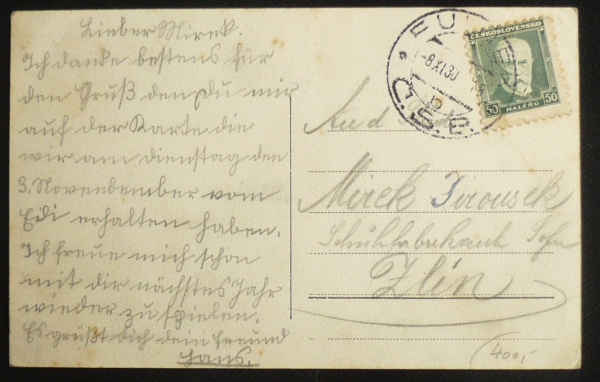 Lieber Mirek.
Ich danke bestens für
den Gruß den Du mir
auf der Karte die
wir am Dienstag den
3. Novembember vom
Edi erhalten haben.
Ich freue mich schon
mit dir nächstes Jahr
wieder zu spielen.
Es grüßt dich dein Freund
Hans.
ČESKOSLOVENSKO
50 50
HALÉŘŮ
-8.XI.30
Č.S.R.
Mirek Jirousek
Schuhfabrikant Sohn
Zlín
400,-